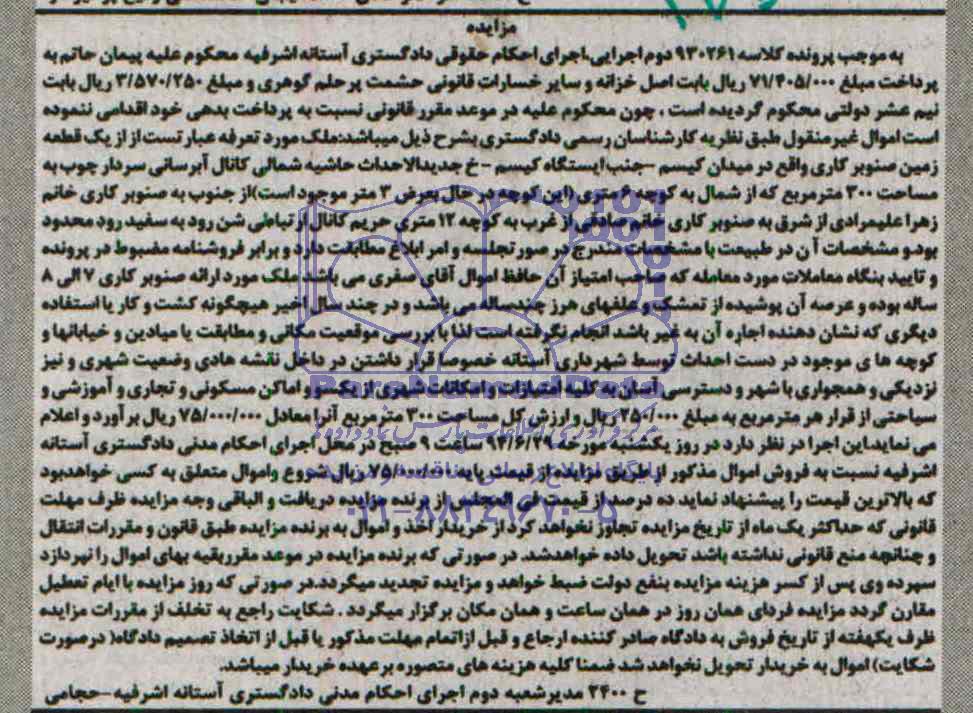 مزایده
به موجب پرونده کلاسه ۹۳۰۲۶۱ دوم اجرایی،اجرای احکام حقوقی دادگستری آستانه اشرفیه محکوم علیه پیمان حاتم به
پرداخت مبلغ ۷۱/۴۰۵/۰۰۰ ریال بابت اصل خزانه و سایر خسارات قانونی حشمت پر حلم گوهری و مبلغ ۳/۵۷۰/۲۵۰ ریال بابت
نیم عشر دولتی محکوم گردیده است ، چون محکوم علیه در موعد مقرر قانونی نسبت به پرداخت بدهی خود اقدامی ننموده
است اموال غیرمنقول طبق نظریه کارشناسان رسمی دادگستری بشرح ذیل میباشد:ملک مورد تعرفه عبارتست از از یک قطعه
زمین صنوبر کاری واقع در میدان کیسم -جنب ایستگاه کیسم -خ جدیدالاحداث حاشیه شمالی کانال آبرسانی سردار چوب به
مساحت ۳۰۰ مترمربع که از شمال به کوچه ۶ متری (این کوچه در حال بعرض ۳ متر موجود است)از جنوب به صنوبر کاری خانم
زهرا علیمرادی از شرق به صنوبر کاری خانم صادقی از غرب به کوچه ۱۲ متری حریم کانال ارتباطی شن رود به سفید رود محدود
بودو مشخصات آن در طبیعت با مشخصات مندرج در صور تجلسه و امر ابلاغ مطابقت دارد و برابر فروشنامه مضبوط در پرونده
و تایید بنگاه معاملات مورد معامله که صاحب امتیاز آن حافظ اموال آقای صفری می باشد ملک مورد ارائه صنوبر کاری ۷ الی ۸
ساله بوده و عرصه آن پوشیده از تمشک و علفهای هرز چندساله می باشد و در چند سال اخیر هیچگونه کشت و کار یا استفاده
دیگری که نشان دهنده اجاره آن به غیر باشد انجام نگرفته است لذا با بررسی موقعیت مکانی و مطابقت با میادین و خیابانها و
کوچه ها ی موجود در دست احداث توسط شهرداری آستانه خصوصا قرار داشتن در داخل نقشه هادی وضعیت شهری و نیز
نزدیکی و همجواری با شهر و دسترسی آسان به کلیه امتیازات و امکانات شهری از یکسو و اماکن مسکونی و تجاری و آموزشی و
سیاحتی از قرار هر مترمربع به مبلغ ۲۵۰/۰۰۰ ریال و ارزش کل مساحت ۳۰۰ متر مربع آنرا معادل ۷۵/۰۰۰/۰۰۰ ریال برآورد و اعلام
می نماید،این اجرا در نظر دارد در روز یکشنبه مورخه ۹۴/۶/۲۹ ساعت ۹ صبح در محل اجرای احکام مدنی دادگستری آستانه
اشرفیه نسبت به فروش اموال مذکور از طریق مزایده از قیمت پایه ۷۵/۰۰۰/۰۰۰ ریال شروع واموال متعلق به کسی خواهدبود
که بالاترین قیمت را پیشنهاد نماید ده درصد از قیمت فی المجلس از برنده مزایده دریافت و الباقی وجه مزایده ظرف مهلت
قانونی که حداکثر یک ماه از تاریخ مزایده تجاوز نخواهد کرد از خریدار اخذ و اموال به برنده مزایده طبق قانون و مقررات انتقال
و چنانچه منع قانونی نداشته باشد تحویل داده خواهدشد. در صورتی که برنده مزایده در موعد مقرربقیه بهای اموال را نپردازد
سپرده وی پس از کسر هزینه مزایده بنفع دولت ضبط خواهد و مزایده تجدید میگردد.در صورتی که روز مزایده با ایام تعطیل
مقارن گردد مزایده فردای همان روز در همان ساعت و همان مکان برگزار میگردد . شکایت راجع به تخلف از مقررات مزایده
ظرف یکهفته از تاریخ فروش به دادگاه صادر کننده ارجاع و قبل ازاتمام مهلت مذکور یا قبل از اتخاذ تصمیم دادگاه( درصورت
شکایت) اموال به خریدار تحویل نخواهد شد ضمنا کلیه هزینه های متصوره بر عهده خریدار میباشد.
ح ۲۴۰۰ مدیرشعبه دوم اجرای احکام مدنی دادگستری آستانه اشرفیه-حجامی